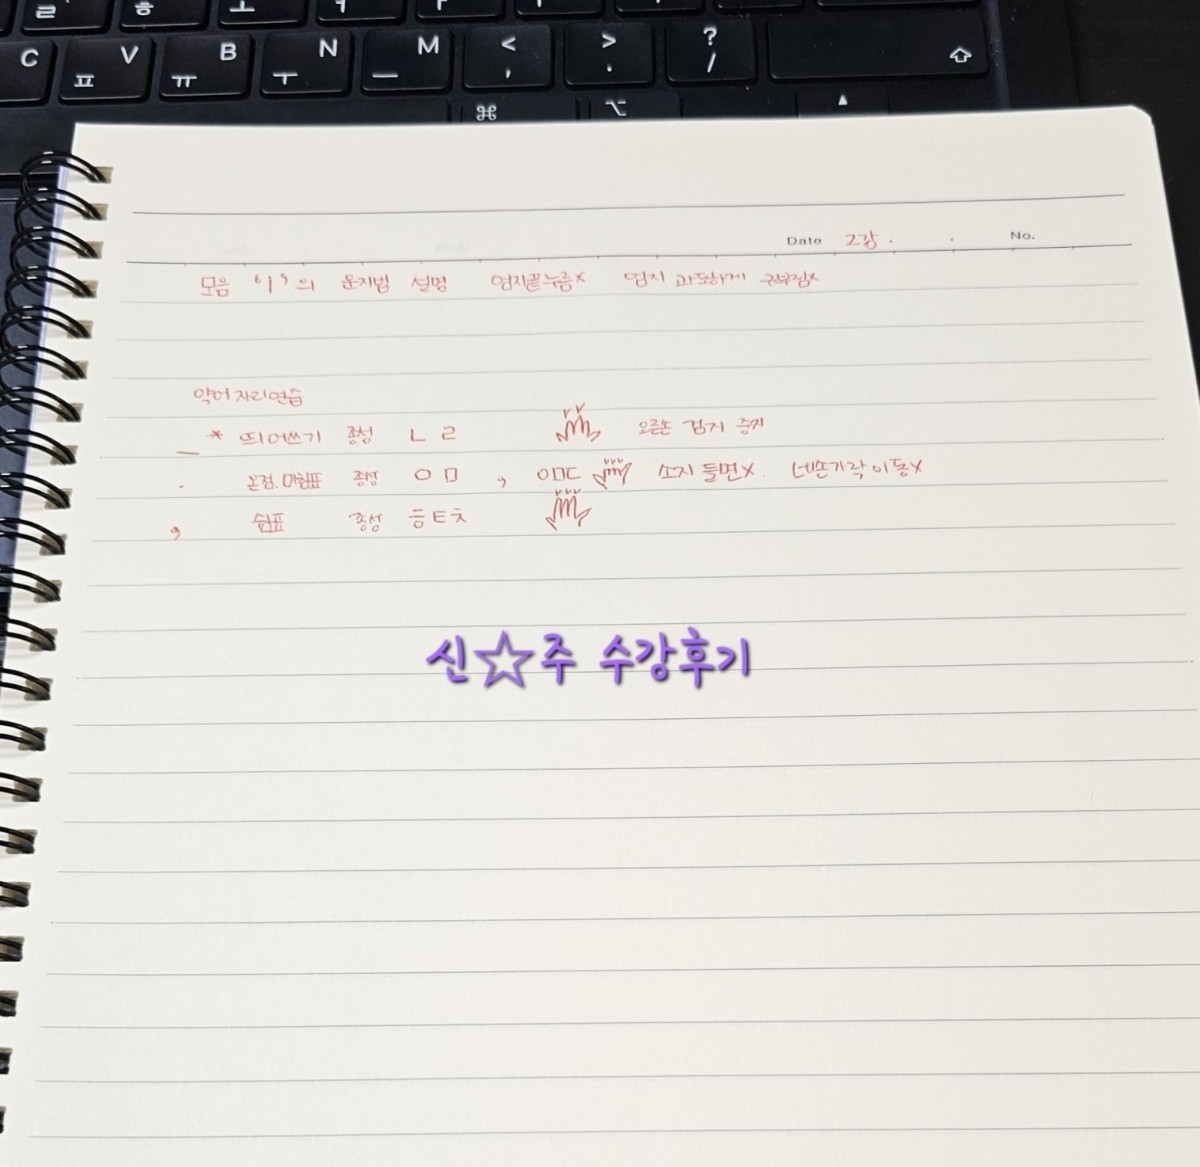 ㄹ ㅎ ㅗ ㅓ ㅏ ㅣ
C V ㅍ B ㅠ N ㅜ M ㅡ < , > . ? /
⌘ ⌥ ▲
Date 2강 . . No.
모음 'ㅣ'의 운지법 설명 엄지끝누름x 엄지 과도하게 구부림x
약어자리연습
_ * 띄어쓰기 종성 ㄴ ㄹ 오른손 검지 중지
. 온점.마침표 종성 ㅇ ㅁ , ㅇㅁㄷ 소지 들면x. 네손가락이동x
, 쉼표 종성 ㅎㅌㅊ
신☆주 수강후기